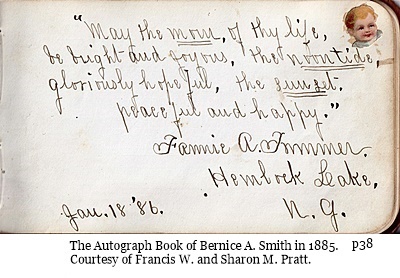 "May the morn, of thy life,
be bright and joyous, the noontide,
gloriously hopeful, the sunset.
peaceful and happy."
Fannie A. Trimmer.
Hemlock Lake,
Jan. 18 '86. N. Y.
The Autograph Book of Bernice A. Smith in 1885. p38
Courtesy of Francis W. and Sharon M. Pratt.